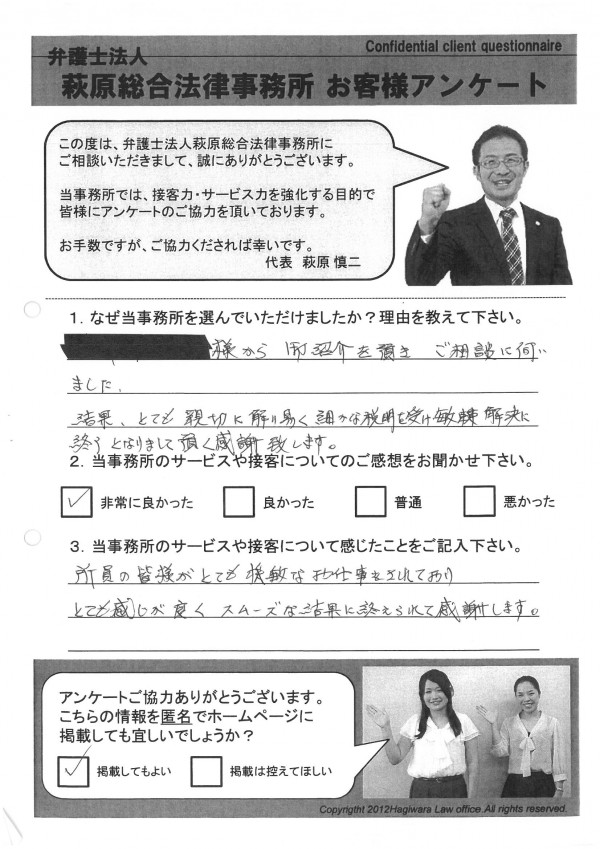 Confidential client questionnaire
弁護士法人
萩原総合法律事務所 お客様アンケート
この度は、弁護士法人萩原総合法律事務所に
ご相談いただきまして、誠にありがとうございます。
当事務所では、接客力・サービス力を強化する目的で
皆様にアンケートのご協力を頂いております。
お手数ですが、ご協力くだされば幸いです。
代表 萩原 慎二
1. なぜ当事務所を選んでいただけましたか？理由を教えて下さい。
様から 紹介を頂き ご相談に伺い
ました、
結果、とても 親切に解り易く 細かな説明を受け 解決に
終了となりまして 頂く感謝致します。
2. 当事務所のサービスや接客についてのご感想をお聞かせ下さい。
非常に良かった 良かった 普通 悪かった
3. 当事務所のサービスや接客について感じたことをご記入下さい。
所員の皆様がとても 機敏な お仕事をされており
とても感じが良く スムーズな結果に終えられて感謝します。
アンケートご協力ありがとうございます。
こちらの情報を匿名でホームページに
掲載しても宜しいでしょうか？
掲載してもよい 掲載は控えてほしい
Copyrigtht 2012Hagiwara Law office.All rights reserved.